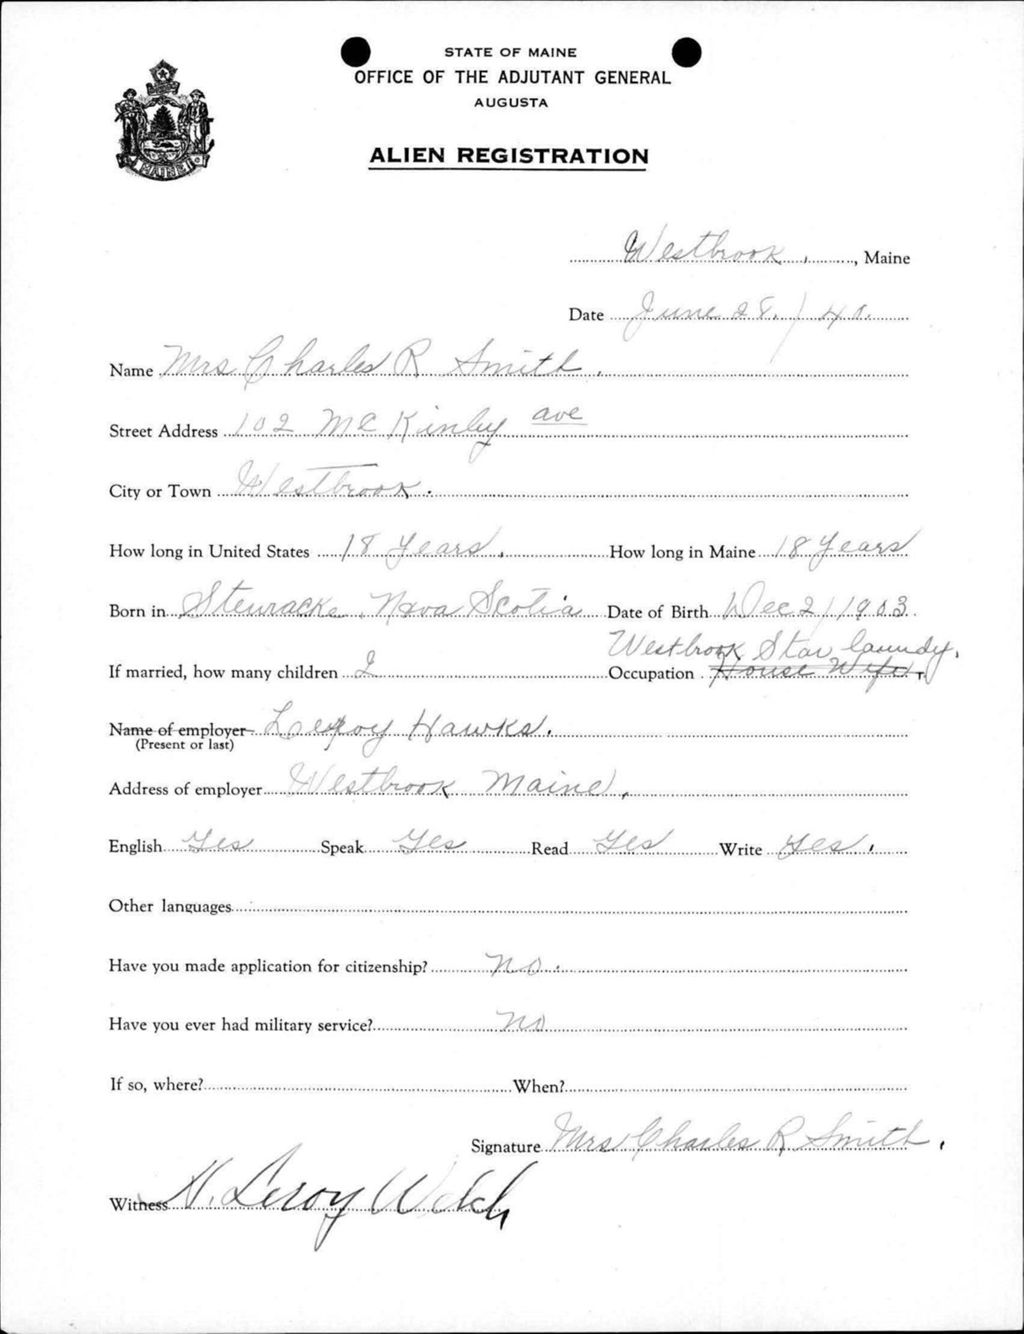 STATE OF MAINE
OFFICE OF THE ADJUTANT GENERAL
AUGUSTA
ALIEN REGISTRATION
MAINE
Westbrook, Maine
Date June 28, / 40.
Name Mrs Charles R Smith.
Street Address 102 McKinley ave
City or Town Westbrook.
How long in United States 18 Years. How long in Maine 18 Years
Born in Nova Scotia Date of Birth Dec 21 1903
Westbrook Star laundy.
If married, how many children 2 Occupation House Wife.
Name of employer Leroy Hawks.
(Present or last)
Address of employer Westbrook Maine.
English Yes Speak Yes Read Yes Write Yes.
Other languages
Have you made application for citizenship? No.
Have you ever had military service? No
If so, where? When?
Signature Mrs Charles R Smith.
Witness H. Leroy Welch